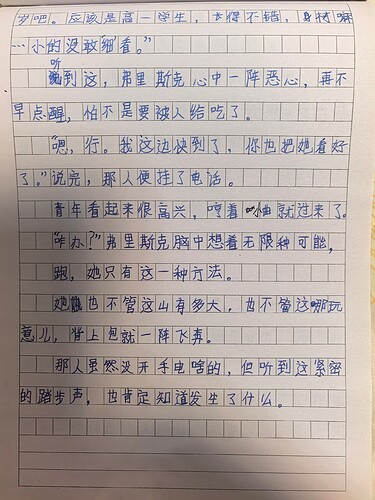 岁吧。应该是高一学生，长得不错，身材嘛
…小的没敢细看。”
听到这，弗里斯克心中一阵恶心，再不
早点醒，怕不是要被人给吃了。
“嗯，行。我这边快到了，你也把她看好
了。”说完，那人便挂了电话。
青年看起来很高兴，哼着小曲就过来了。
“咋办？”弗里斯克脑中想着无限种可能，
跑，她只有这一种方法。
她也不管这山有多大，也不管这哪玩
意儿，背上包就一阵飞奔。
那人虽然没开手电啥的，但听到这紧密
的踏步声，也肯定知道发生了什么。